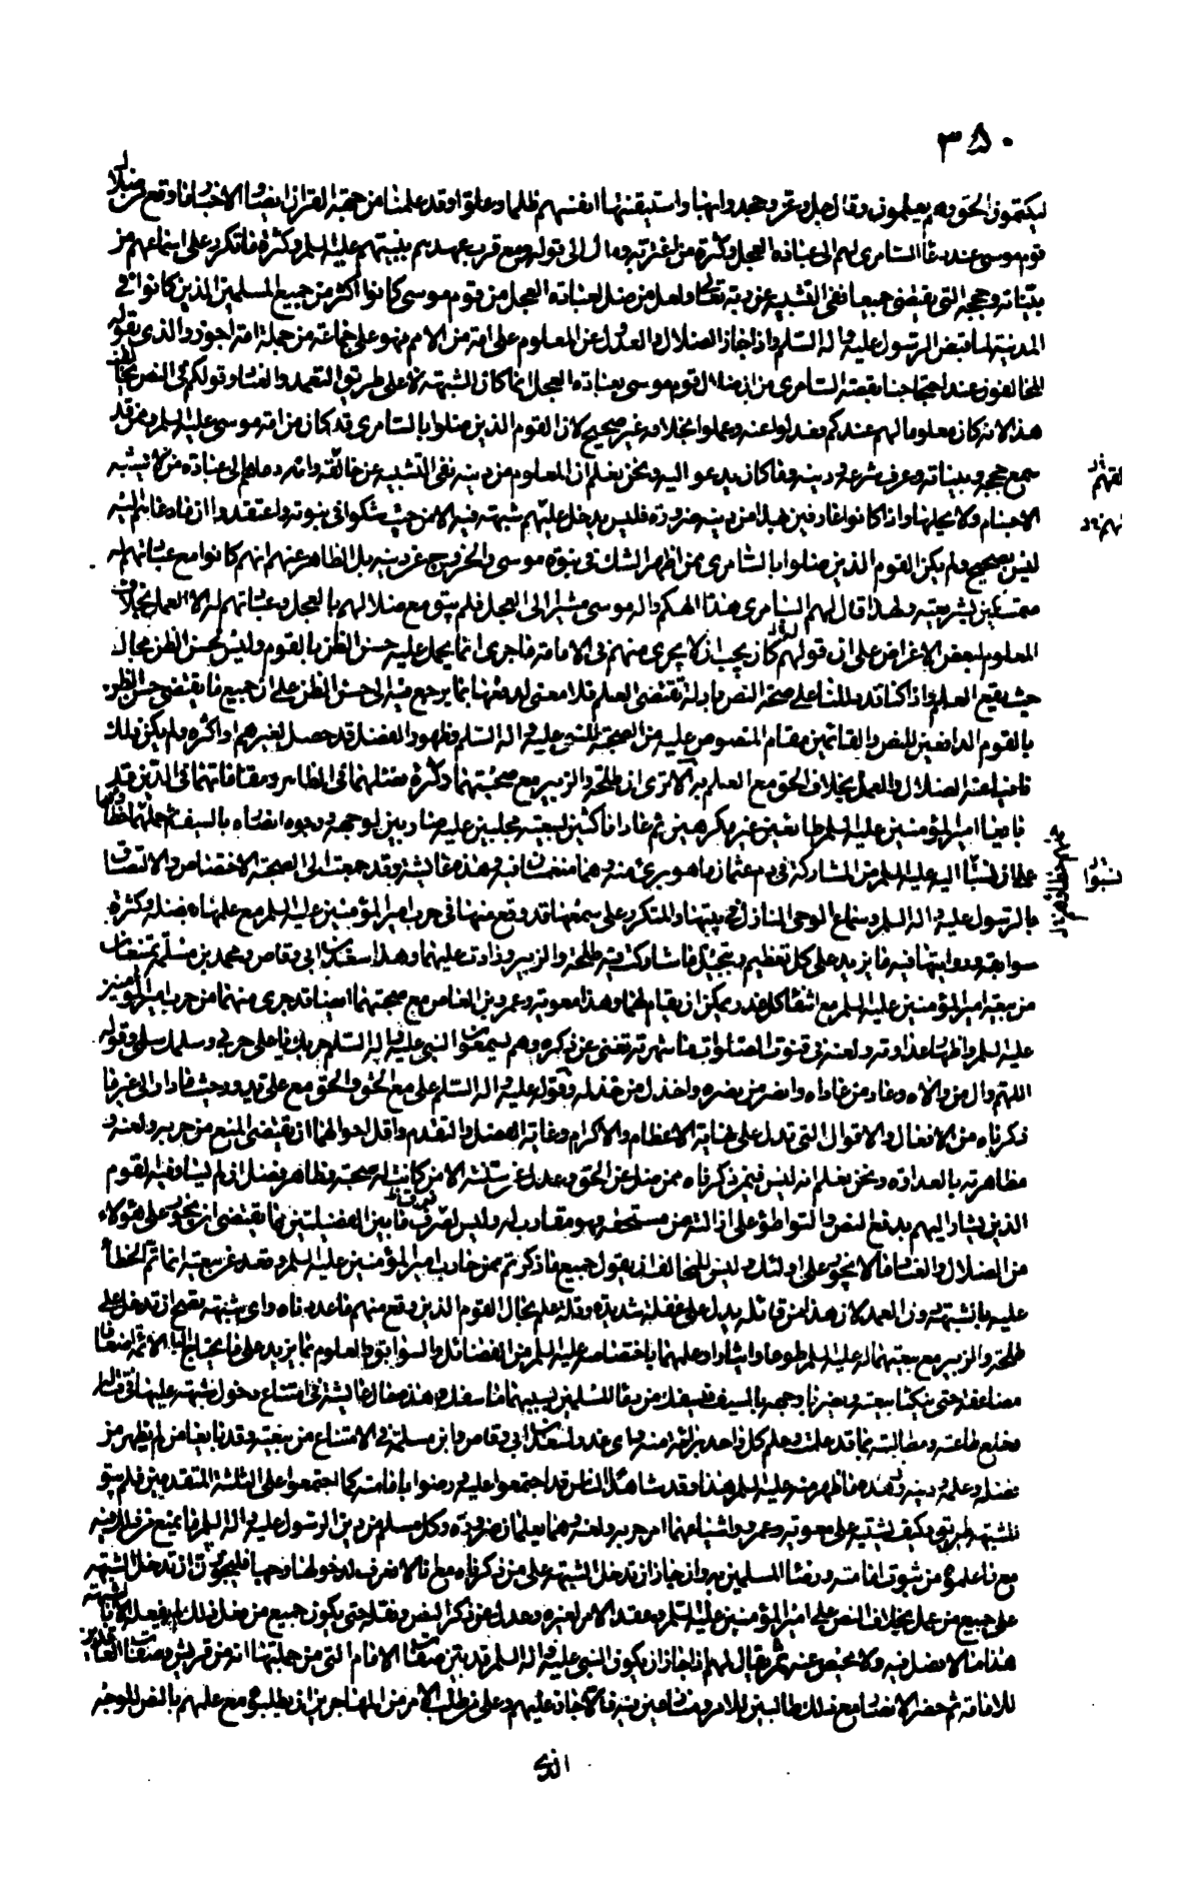 ٣٥٠
ليكتمون الحق وهم يعلمون وقال جل وعز وجحدوا بها واستيقنتها انفسهم ظلما وعلوا وقد علمنا من جهة القران ايضا والاخبار ما وقع من ضلال
قوم موسى عند دعاء السامرى لهم الى عبادة العجل وكثرة من اغتر به ومال الى قوله مع قرب عهدهم بنبيهم عليه السلم وكثرة ما تكرر على اسماعهم من
بيناته وحججه التى يقتضى جميعا نفى التشبيه عن ربه تعالى ولعل من ضل بعبادة العجل من قوم موسى كانوا اكثر من جميع المسلمين الذين كانوا فى
المدينة لما قبض الرسول عليه واله السلم واذا جاز الضلال والعدول عن المعلوم على امة من الامم فهو على جماعة من جملة امة اجوز والذى يقوله
المخالفون عند احتجاجنا بقصة السامرى من ان ضلال قوم موسى بعبادة العجل انما كان للشبهة لا على طريق التعمد والعناد وقولكم فى النص بخلاف
هذا لانه كان معلوما لهم عندكم فعدلوا عنه وعملوا بخلافه غير صحيح لان القوم الذين ضلوا بالسامرى قد كان من امة موسى عليه السلم وممن قد
سمع حججه وبيناته وعرف شرعه ودينه وما كان يدعو اليه ونحن نعلم ان المعلوم من دينه نفى التشبيه عن خالقه وانه دعاهم الى عبادة من لا يشبه
الاجسام ولا يحلها واذا كانوا عارفين بهذا من دينه ضرورة فليس يدخل عليهم شبهة فيه الا من حيث شكوا فى نبوته واعتقدوا ان ما دعاهم اليه
ليس بصحيح ولم يكن القوم الذين ضلوا بالسامرى ممن اظهر الشك فى نبوة موسى والخروج عن دينه بل الظاهر عنهم انهم كانوا مع عبادتهم له
متمسكين بشريعته ولهذا قال لهم السامرى هذا الهكم واله موسى مشيرا الى العجل فلم يبق مع ضلالهم بالعجل وعبادتهم له الا العمل بخلاف
المعلوم لبعض الاغراض على ان قولهم كان يجب ان لا يجرى منهم فى الامامة ما جرى انما يحمل عليه حسن الظن بالقوم وليس لحسن الظن مجال
حيث يقع العلم واذا كنا قد دللنا على صحة النص بادلة تقتضى العلم فلا معنى لدفعها بما يرجع فيه الى حسن الظن على ان جميع ما يقتضى حسن الظن
بالقوم الدافعين للنص والقائمين مقام المنصوص عليه من الصحبة للنبى عليه واله السلم وظهور الفضل قد حصل لغيرهم او اكثره ولم يكن ذلك
مانعا عند الضلال والعمل بخلاف الحق مع العلم به الا ترى ان طلحة والزبير مع صحبتهما وكثرة فضلهما فى الظاهر ومقاماتهما فى الدين قد
بايعا امير المؤمنين عليه السلم طايعين غير مكرهين ثم عادا ناكثين لبيعته مجلبين عليه ضاربين لوجهه ووجوه انصاره بالسيف
على ان نسبا اليه عليه السلم من المشاركة فى دم عثمان ما هو برئ منه وهما منغمسان فيه وهذه عايشة وقد جمعت الى الصحبة الاختصاص والالتصاق
بالرسول عليه واله السلم وسماع الوحى النازل فى بيتها والمتكرر على سمعها قد وقع منها فى حرب امير المؤمنين عليه السلم مع علمها بفضله وكثرة
سوابقه وروايتها فيه ما يزيد على كل تعظيم وتبجيل ما شاركت فيه طلحة والزبير وزادت عليهما وهذا سعد بن ابى وقاص ومحمد بن مسلمة يمتنعان
من بيعة امير المؤمنين عليه السلم مع وهذا معوية وعمرو بن العاص مع صحبتهما ايضا قد جرى منهما من حرب امير المؤمنين
عليه السلم واظهار عداوته ولعنه فى قنوت الصلوات ما شهرته تغنى عن ذكره وهم يسمعون النبى عليه واله السلم حربك يا على حربى وسلمك سلمى وقوله
اللهم وال من والاه وعاد من عاداه وانصر من نصره واخذل من خذله وقوله عليه واله السلم على مع الحق والحق مع على يدور حيث ما دار الى غير ما
ذكرناه من الافعال والاقوال التى تدل على غاية الاعظام والاكرام ونهاية الفضل والتقدم واقل احوالها ان يقتضى المنع من حربه ولعنه و
مظاهرته بالعداوة ونحن نعلم انه ليس فيمن ذكرناه ممن ضل عن الحق وعدل عن سننه الا من كانت له صحبة وظاهر فضل ان لم يساو فيه القوم
الذين يشار اليهم بدفع النص والتواطؤ على ازالته عن مستحقه فهو مقارب له وليس فرق ما بين الفضيلتين بما يقتضى ان يجوز على هؤلاء
من الضلال والعناد ما لا يجوز على اولئك وليس للمخالف ان يقول جميع ما ذكرتم ممن حارب امير المؤمنين عليه السلم وقعد عن بيعته انما تم الخطأ
عليه بالشبهة دون العمد لان هذا من قائله يدل على غفلة شديدة وقلة علم بحال القوم الذين وقع منهم ما عددناه واى شبهة يصح ان تدخل على
طلحة والزبير مع بيعتهما له عليه السلم طوعا وايثارا وعلمهما باختصاصه عليه السلم من الفضائل والسوابق والعلوم بما يزيد على ما يحتاج اليه الائمة اضعافا
مضاعفة حتى ينكثا بيعته ويضربا وجهه بالسيف ويسفك من دماء المسلمين بسببهما ما سفك وهذه حال عايشة فى امتناع دخول شبهة عليها فى قتاله
وخلع طاعته ومطالبته بما قد علمت وعلم كل احد براءته منه واى عذر لسعد بن ابى وقاص وابن مسلمة فى الامتناع من بيعته وقد بايعا من لم يظهر من
فضله وعلمه ودينه وزهده ما ظهر منه عليه السلم هذا وقد شاهدا الناس قد اجتمعوا عليه ورضوا بامامته كما اجتمعوا على الثلثة المتقدمين فلم يبق
للشبهة طريق وكيف يشتبه على معوية وعمرو واشياعهما امر حربه ولعنه وهما يعلمان ضرورة وكل مسلم من دين الرسول عليه واله السلم ما يمنع من ذلك فيه
مع ما علموه من ثبوت امامته ورضا المسلمين به وان جاز ان تدخل الشبهة على من ذكرناه مع ما لا نعرف لدخولها وجها فليجوزن ان تدخل الشبهة
على جميع من عمل بخلاف النص على امير المؤمنين عليه السلم وعقد الامر لغيره وعدل عن ذكر النص ونقله حتى يكون جميع من فعل ذلك لم يفعله الا بالشبهة
هذا ما لا فضل فيه ولا محيص عنه ثم يقال لهم اذا جاز ان يكون النبى عليه واله السلم قد بين صفات الامام التى من جملتها انه من قريش وصفات العاقدين
للامامة ثم حضر الانصار مع ذلك طالبين للامر ومنازعين فيه فالا جاز عليهم وعلى من طلب الامر من المهاجرين ان يطلبوه مع علمهم بالنص للوجه
الذى